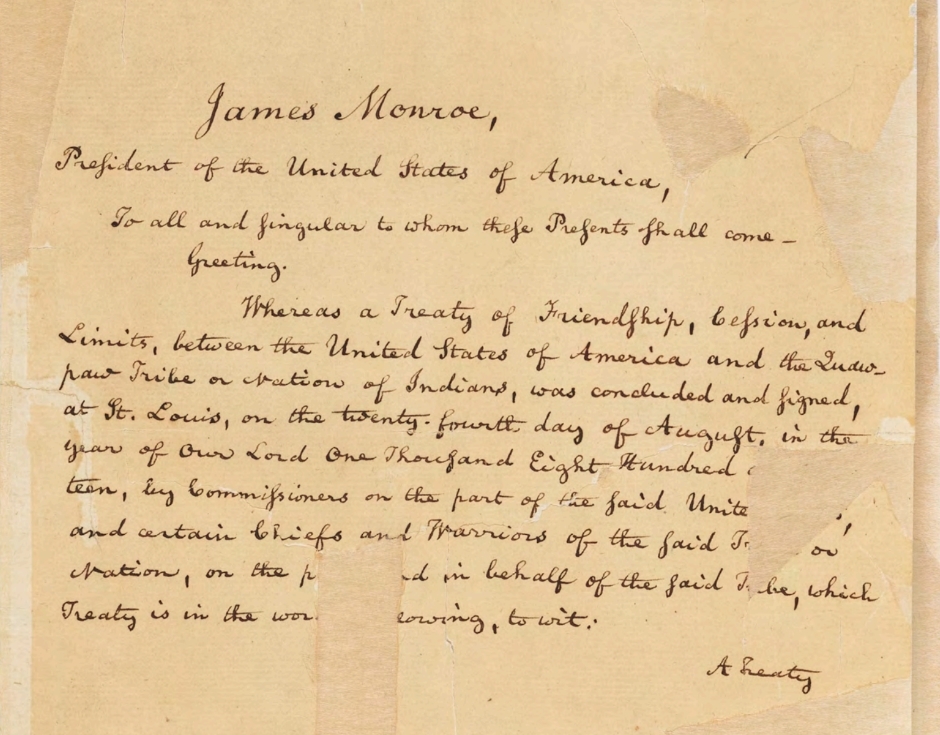 James Monroe,
President of the United States of America,
To all and singular to whom these Presents shall come –
Greeting.
Whereas a Treaty of Friendship, Cession, and
Limits, between the United States of America and the Quaw-
paw Tribe or Nation of Indians, was concluded and signed,
at St. Louis, on the twenty-fourth day of August, in the
year of Our Lord One Thousand Eight Hundred
teen, by Commissioners on the part of the said Unite
and certain Chiefs and Warriors of the said or
Nation, on the in behalf of the said Tribe, which
Treaty is in the to wit:
A Treaty